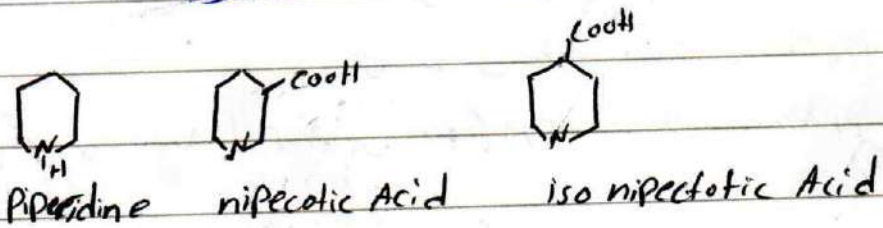 COOH
COOH
N
H
N
N
Piperidine nipecotic Acid iso nipectotic Acid